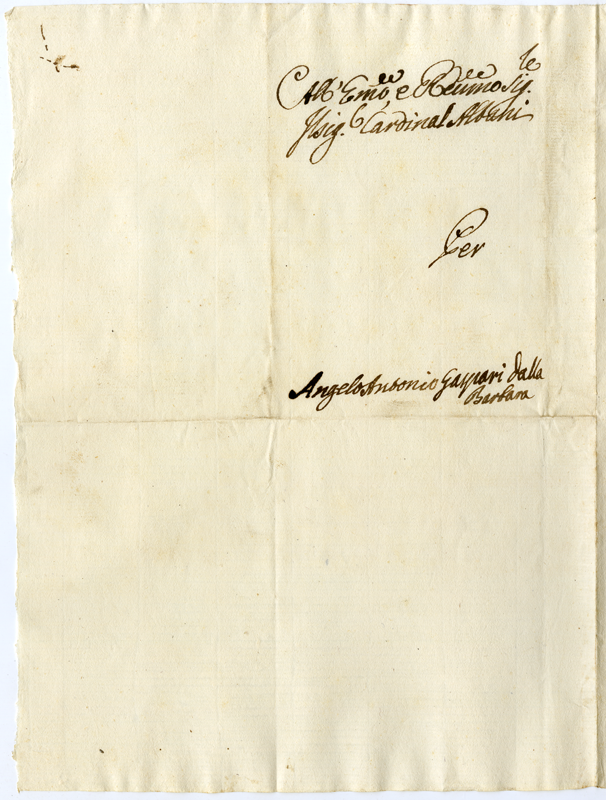 All' Emo e Reumo Sig.le
Il Sig. Cardinal Albani
Per
Angelo Antonio Gaspari dalla
Barbara